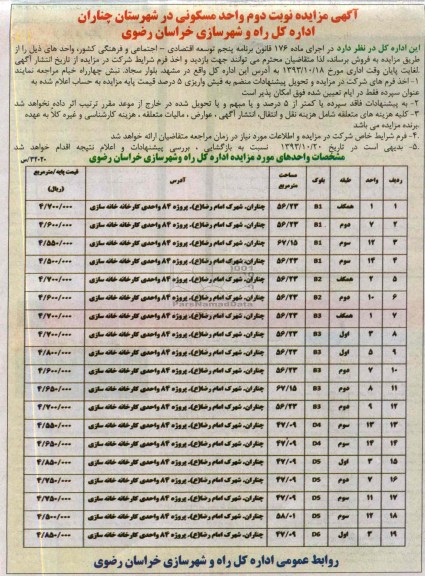 آگهی مزایده نوبت دوم واحد مسکونی در شهرستان چناران
اداره کل راه و شهرسازی خراسان رضوی
این اداره کل در نظر دارد در اجرای ماده ۱۷۶ قانون برنامه پنجم توسعه اقتصادی - اجتماعی و فرهنگی کشور، واحد های ذیل را از
طریق مزایده به فروش برساند، لذا متقاضیان محترم می توانند جهت بازدید و اخذ فرم شرایط شرکت در مزایده از تاریخ انتشار آگهی
لغایت پایان وقت اداری مورخ ۱۳۹۳/۱۰/۱۸ به آدرس این اداره کل واقع در مشهد، بلوار سجاد، نبش چهارراه خیام مراجعه نمایند.
۱-اخذ فرم های شرکت در مزایده و تحویل پیشنهادات منضم به فیش واریزی ۵ درصد قیمت پایه مزایده به حساب اعلام شده به
عنوان سپرده فقط در ایام تعیین شده فوق امکان پذیر است
۲- به پیشنهادات فاقد سپرده یا کمتر از ۵ درصد و یا مبهم و یا تحویل شده در خارج از موعد مقرر ترتیب اثر داده نخواهد شد
۳-کلیه هزینه های متعلقه شامل هزینه نقل و انتقال، انتشار آگهی ، عوارض ، مالیات متعلقه ، هزینه کارشناسی و غیره کلا به عهده
برنده مزایده می باشد.
۴-فرم شرایط خاص شرکت در مزایده و اطلاعات مورد نیاز در زمان مراجعه متقاضیان ارائه خواهد شد
۵- بدیهی است در تاریخ ۱۳۹۳/۱۰/۲۰ نسبت به بازگشایی ، بررسی پیشنهادات و اعلام نتیجه اقدام خواهد شد
مشخصات واحدهای مورد مزایده اداره کل راه وشهرسازی خراسان رضوی
ردیف واحد طبقه بلوک مساحت مترمربع آدرس قیمت پایه/مترمربع (ریال)
۱ ۱ همکف B1 ۵۶/۲۳ چناران، شهرک امام رضا(ع)، پروژه ۸۴ واحدی کارخانه خانه سازی ۴/۷۰۰/۰۰۰
۲ ۷ دوم B1 ۵۶/۲۳ چناران، شهرک امام رضا(ع)، پروژه ۸۴ واحدی کارخانه خانه سازی ۴/۶۰۰/۰۰۰
۳ ۱۲ سوم B1 ۶۷/۱۵ چناران، شهرک امام رضا(ع)، پروژه ۸۴ واحدی کارخانه خانه سازی ۴/۵۵۰/۰۰۰
۴ ۱۴ سوم B1 ۵۶/۲۳ چناران، شهرک امام رضا(ع)، پروژه ۸۴ واحدی کارخانه خانه سازی ۴/۵۰۰/۰۰۰
۵ ۲ همکف B2 ۵۶/۲۳ چناران، شهرک امام رضا(ع)، پروژه ۸۴ واحدی کارخانه خانه سازی ۴/۷۰۰/۰۰۰
۶ ۱۰ دوم B2 ۵۶/۲۳ چناران، شهرک امام رضا(ع)، پروژه ۸۴ واحدی کارخانه خانه سازی ۴/۶۰۰/۰۰۰
۷ ۱ همکف B3 ۵۶/۲۳ چناران، شهرک امام رضا(ع)، پروژه ۸۴ واحدی کارخانه خانه سازی ۴/۷۰۰/۰۰۰
۸ ۳ اول B3 ۵۶/۲۳ چناران، شهرک امام رضا(ع)، پروژه ۸۴ واحدی کارخانه خانه سازی ۴/۷۰۰/۰۰۰
۹ ۵ اول B3 ۵۶/۲۳ چناران، شهرک امام رضا(ع)، پروژه ۸۴ واحدی کارخانه خانه سازی ۴/۸۰۰/۰۰۰
۱۰ ۷ دوم B3 ۵۶/۲۳ چناران، شهرک امام رضا(ع)، پروژه ۸۴ واحدی کارخانه خانه سازی ۴/۶۰۰/۰۰۰
۱۱ ۸ دوم B3 ۶۷/۱۵ چناران، شهرک امام رضا(ع)، پروژه ۸۴ واحدی کارخانه خانه سازی ۴/۶۵۰/۰۰۰
۱۲ ۹ دوم B3 ۵۶/۲۳ چناران، شهرک امام رضا(ع)، پروژه ۸۴ واحدی کارخانه خانه سازی ۴/۷۰۰/۰۰۰
۱۳ ۱۳ سوم D4 ۴۷/۰۹ چناران، شهرک امام رضا(ع)، پروژه ۸۴ واحدی کارخانه خانه سازی ۴/۵۵۰/۰۰۰
۱۴ ۱۴ سوم D4 ۴۷/۰۹ چناران، شهرک امام رضا(ع)، پروژه ۸۴ واحدی کارخانه خانه سازی ۴/۶۵۰/۰۰۰
۱۵ ۳ اول D5 ۴۷/۰۹ چناران، شهرک امام رضا(ع)، پروژه ۸۴ واحدی کارخانه خانه سازی ۴/۸۵۰/۰۰۰
۱۶ ۷ دوم D5 ۴۷/۰۹ چناران، شهرک امام رضا(ع)، پروژه ۸۴ واحدی کارخانه خانه سازی ۴/۷۵۰/۰۰۰
۱۷ ۱۱ سوم D5 ۴۷/۰۹ چناران، شهرک امام رضا(ع)، پروژه ۸۴ واحدی کارخانه خانه سازی ۴/۷۵۰/۰۰۰
۱۸ ۱۲ سوم D5 ۵۸/۰۱ چناران، شهرک امام رضا(ع)، پروژه ۸۴ واحدی کارخانه خانه سازی ۴/۵۰۰/۰۰۰
۱۹ ۳ اول D6 ۴۷/۰۹ چناران، شهرک امام رضا(ع)، پروژه ۸۴ واحدی کارخانه خانه سازی ۴/۸۵۰/۰۰۰
روابط عمومی اداره کل راه و شهرسازی خراسان رضوی